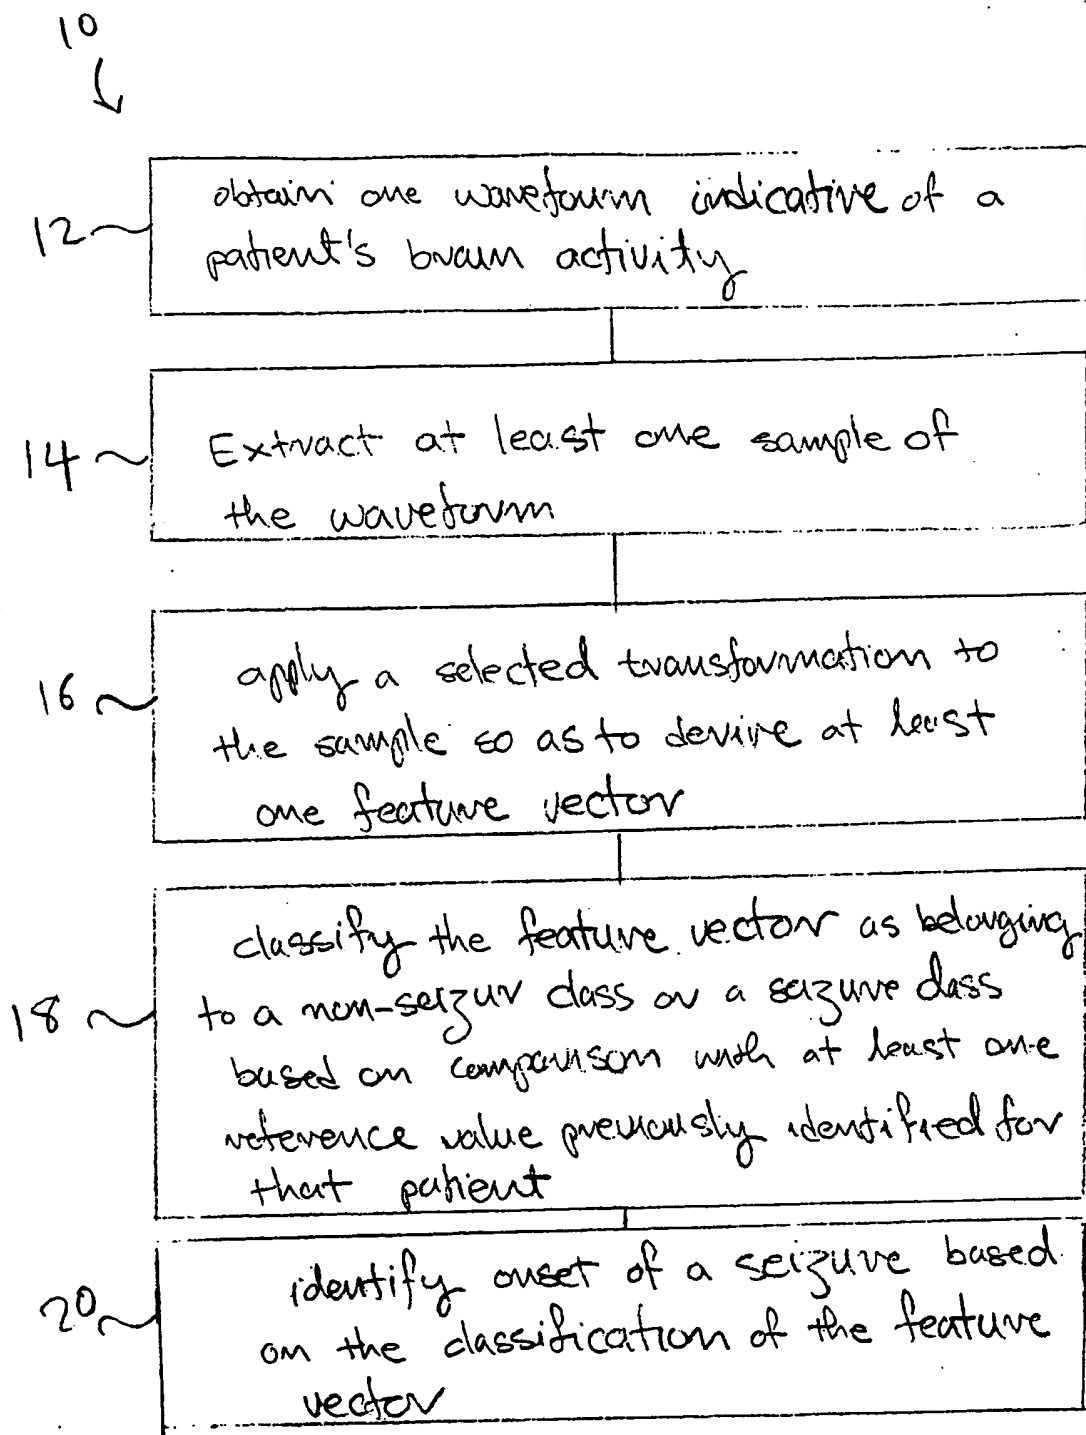 10
12
obtain one waveform indicative of a
patient's brain activity
14
Extract at least one sample of
the waveform
16
apply a selected transformation to
the sample so as to derive at least
one feature vector
18
classify the feature vector as belonging
to a non-seizur class or a seizure class
based on comparison with at least one
reference value previously identified for
that patient
20
identify onset of a seizure based
on the classification of the feature
vector